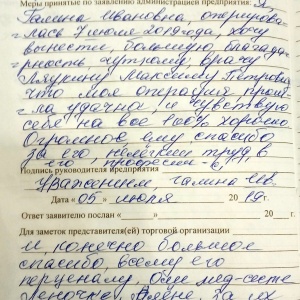 Меры принятые по заявлению администрацией предприятия: Я,
Галина Ивановна, оперирова-
лась 7 июня 2019 года, хочу
вынести, большую благода-
рность хирургу, врачу
Максиму Петрович
что моя операция прош-
ла удачна и чувствую
себя на все 100% хорошо
Огромное ему спасибо
за его, нелёгкий труд в
его, профессии с,
Подпись руководителя предприятия
Уважением, Галина Ив.
Дата «05» июля 2019г.
Ответ заявителю послан « » 20 г.
Для заметок представителя(ей) торговой организации
И, конечно большое
спасибо, всему его
персоналу, мед-сестре
Леночке, Алёне, за их